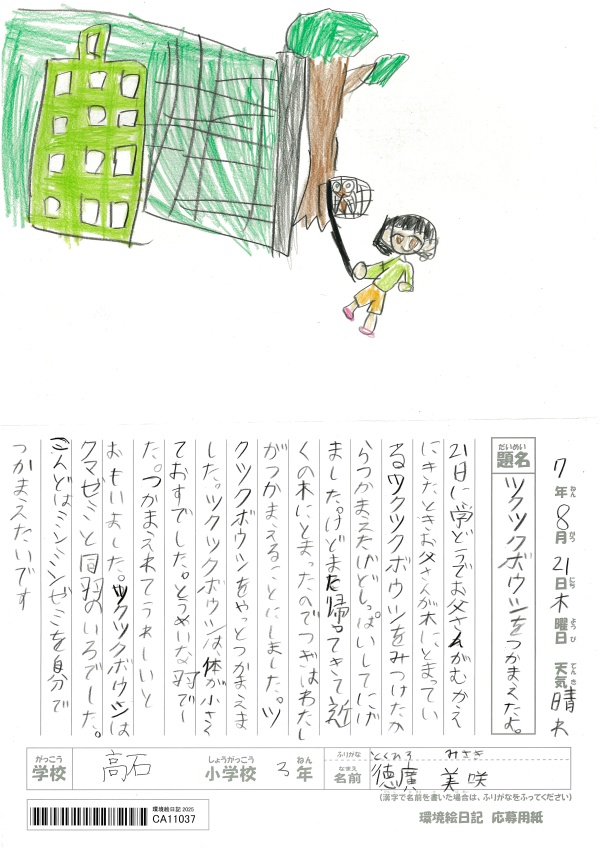 7年ねん8月がつ21日にち木曜日ようび 天気てんき晴れ
だいめい
題名
ツクツクボウシをつかまえたよ。
21日に学どうでお父さんがむかえ
にきたときお父さんが木にとまってい
るツクツクボウシをみつけたか
らつかまえたいけどしっぱいしてにげ
ました。けどまた帰ってきて近
くの木にとまったのでつぎはわたし
がつかまえることにしました。ツ
クツクボウシをやっとつかまえま
した。ツクツクボウシは、体が小さく
ておすでした。とうめいな羽でし
た。つかまえれてうれしいと
おもいました。ツクツクボウシは
クマゼミと同羽のいろでした。
こんどはミンミンゼミを自分で
つかまえたいです
がっこう
学校
高石
しょうがっこう
小学校
3
ねん
年
ふりがな
とくひろ みさき
なまえ
名前
徳廣 美咲
(漢字で名前を書いた場合は、ふりがなをふってください)
環境絵日記 2025
CA11037
環境絵日記 応募用紙